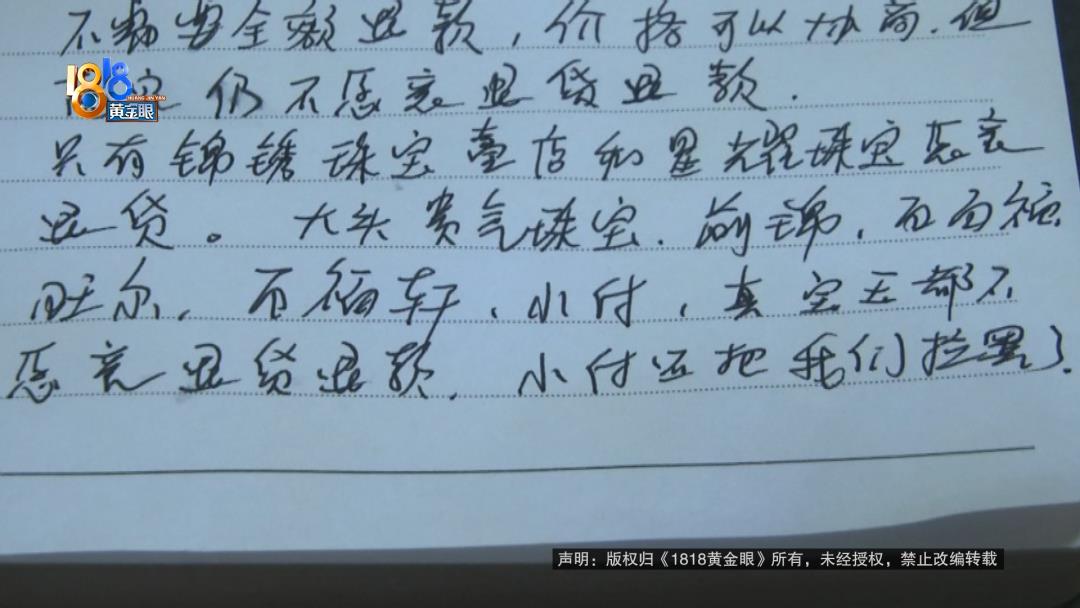 不敢要全额退款，价格可以协商.但
仍不愿意退货退款.
只有锦锈珠宝壹店和星耀珠宝愿意
退货。大头贵气珠宝.前锦，百福
旺尔.百福轩、小付，真宝王都不
愿意退货退款.小付还把我们拉黑了.
1818黄金眼
HUANG JIN YAN
声明：版权归《1818黄金眼》所有，未经授权，禁止改编转载